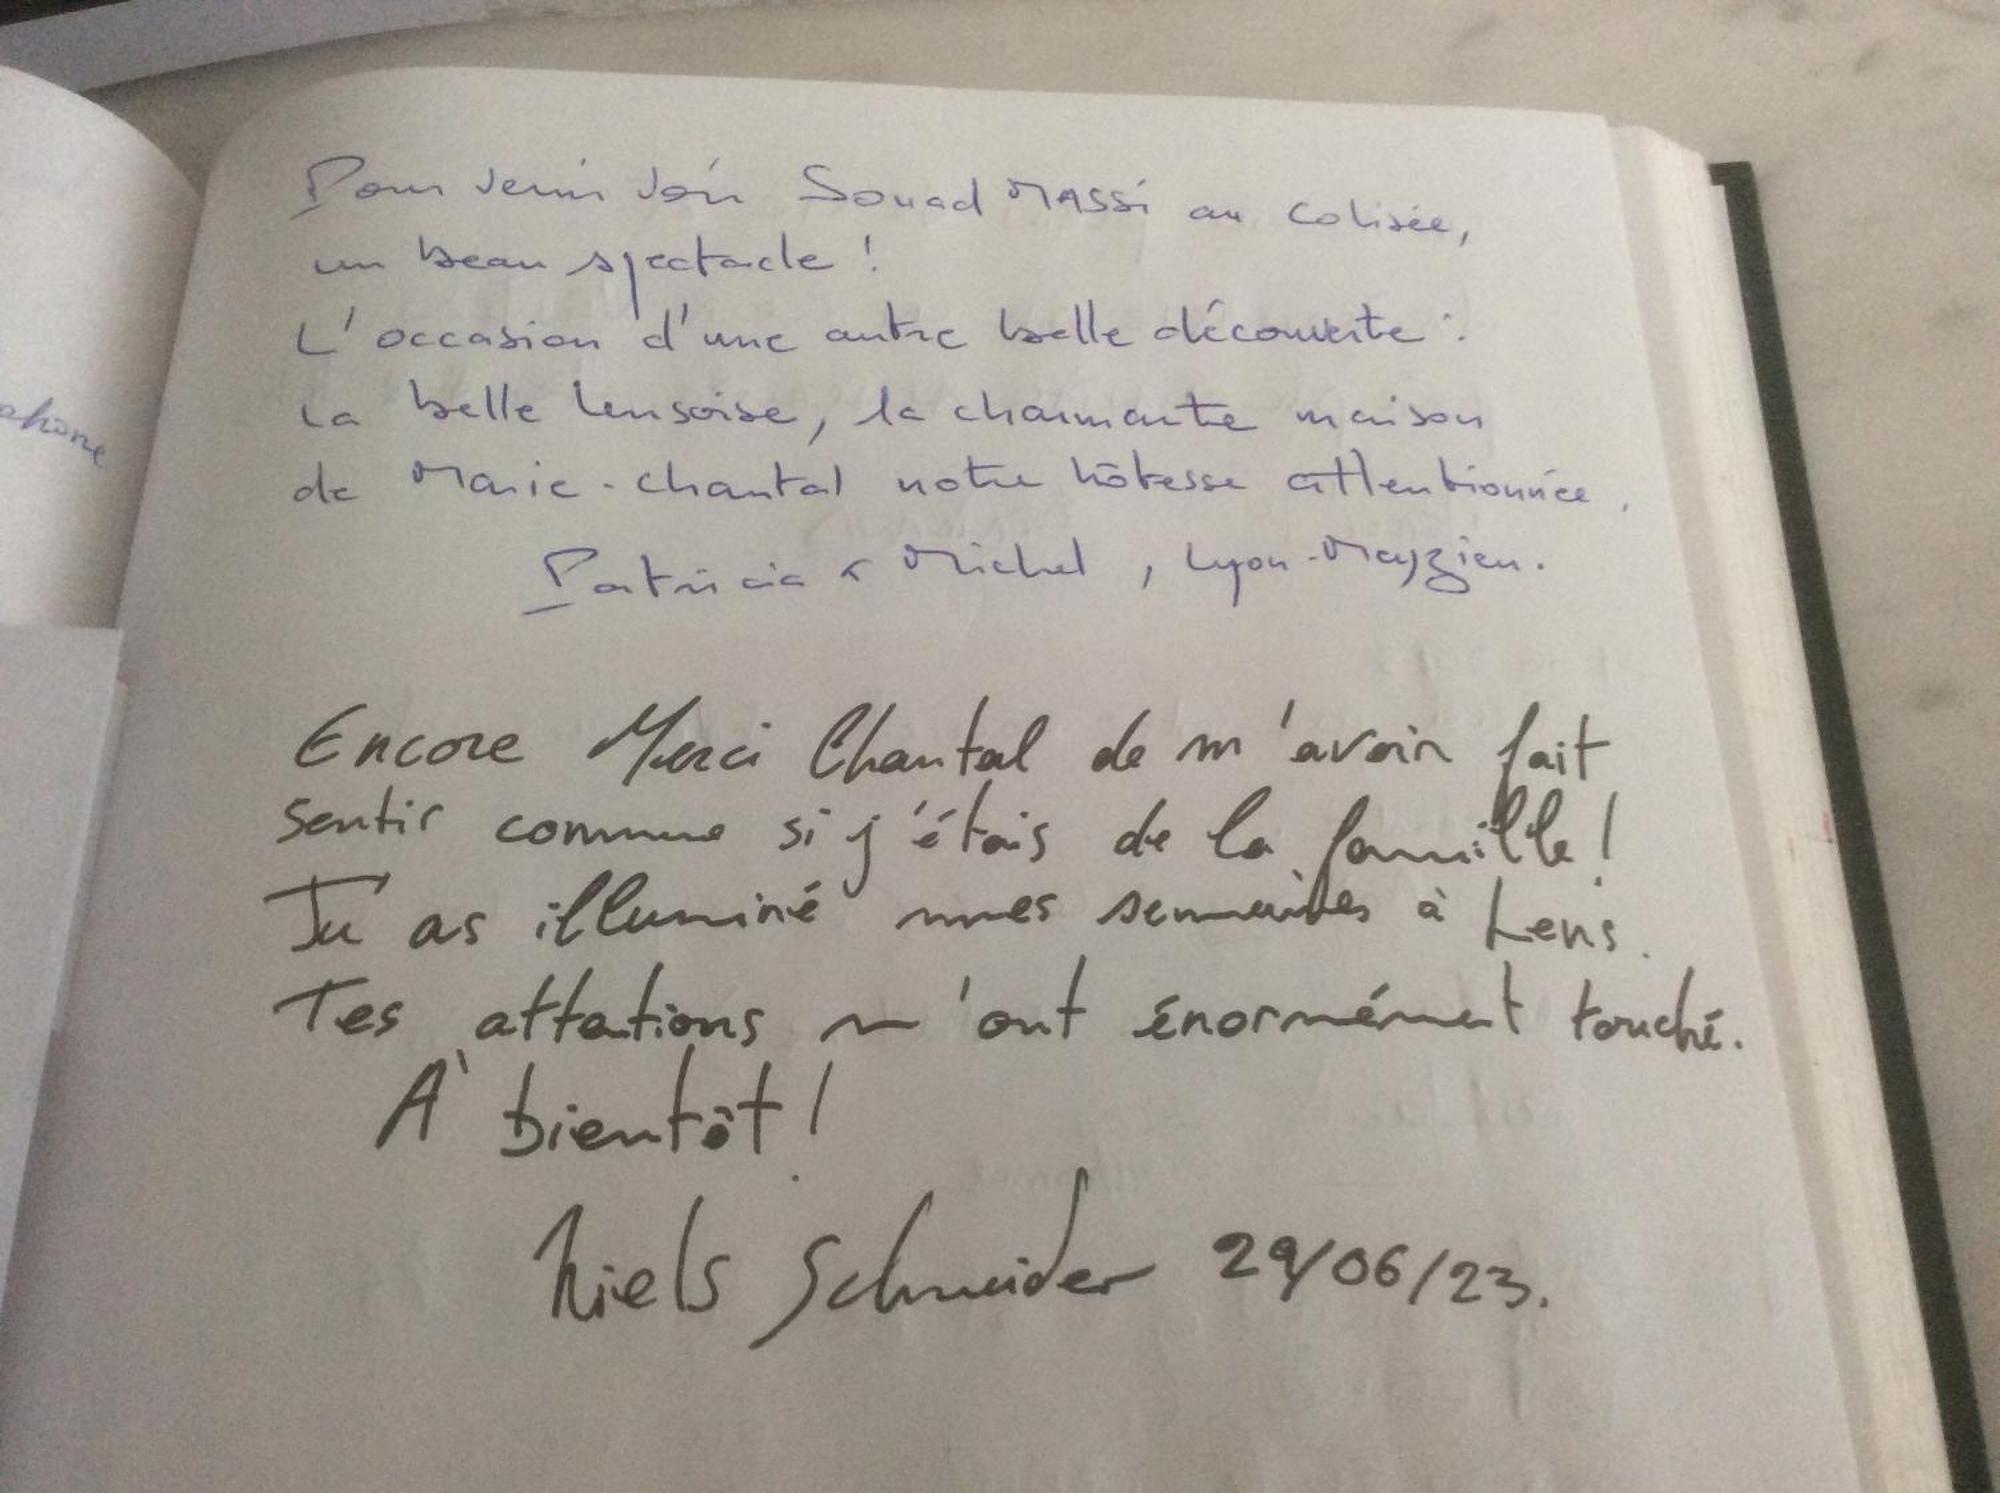 Pour venir voir Souad MASSi au Colisée,
un beau spectacle !
L'occasion d'une autre belle découverte :
la belle lensoise, la charmante maison
de Marie-Chantal notre hôtesse attentionnée.
Patricia & Michel, Lyon-Meyzieu.
Encore Merci Chantal de m'avoir fait
sentir comme si j'étais de la famille !
Tu as illuminé mes semaines à Lens.
Tes attations m'ont énormément touché.
À bientôt !
Niels Schneider 29/06/23.
phone